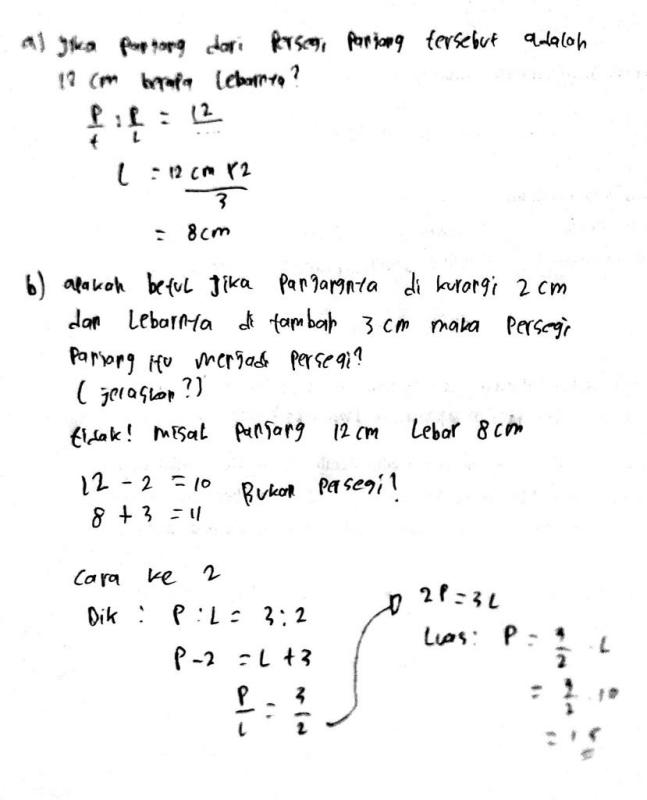 a) jika panjang dari Persegi Panjang tersebut adalah
12 cm berapa Lebarnya?
P : P = 12
L ....
L = 12 cm x 2
3
= 8 cm
b) apakah betul jika Panjangnya di kurangi 2 cm
dan Lebarnya di tambah 3 cm maka Persegi
Panjang itu menjadi Persegi?
( jelaskan?)
tidak! misal Panjang 12 cm Lebar 8 cm
12 - 2 = 10 Bukan Persegi!
8 + 3 = 11
Cara ke 2
Dik : P : L = 3 : 2
P - 2 = L + 3
P = 3
L 2
2P = 3L
Luas : P = . L
2
= . 10
= 15